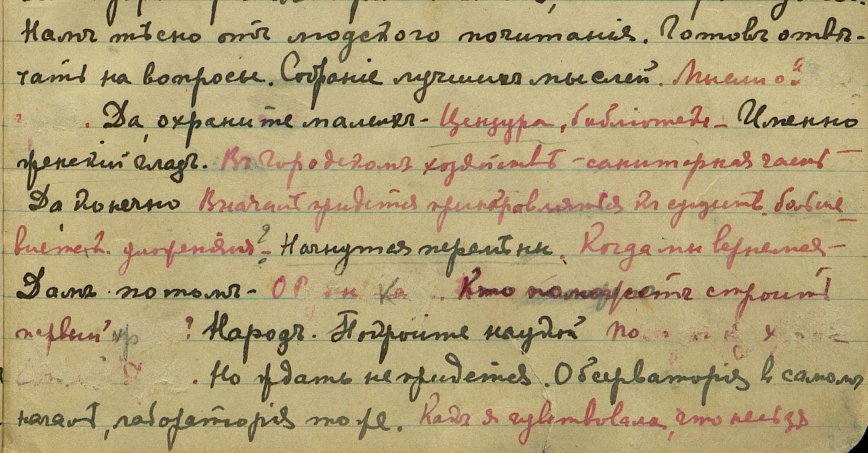 Намъ тѣсно отъ людского почитанія. Готовъ отвѣ-
чать на вопросы. Собраніе лучшихъ мыслей. Мысли о?
? . Да, охраните малыхъ - Цензура, библіотеки - Именно
женскій гладъ. Въ городскомъ хозяйствѣ - санитарная часть -
Да конечно Вначалѣ придется къ сущест. больше-
вистск. ? - Начнутся перемѣны. Когда мы вернемся -
Дамъ потомъ - Кто поможетъ строить
первый ? Народъ. Постройте наукой
. Но ждать не придется. Обсерваторія въ самомъ
началѣ, лабораторія тоже. Какъ я чувствовала, что нельзя